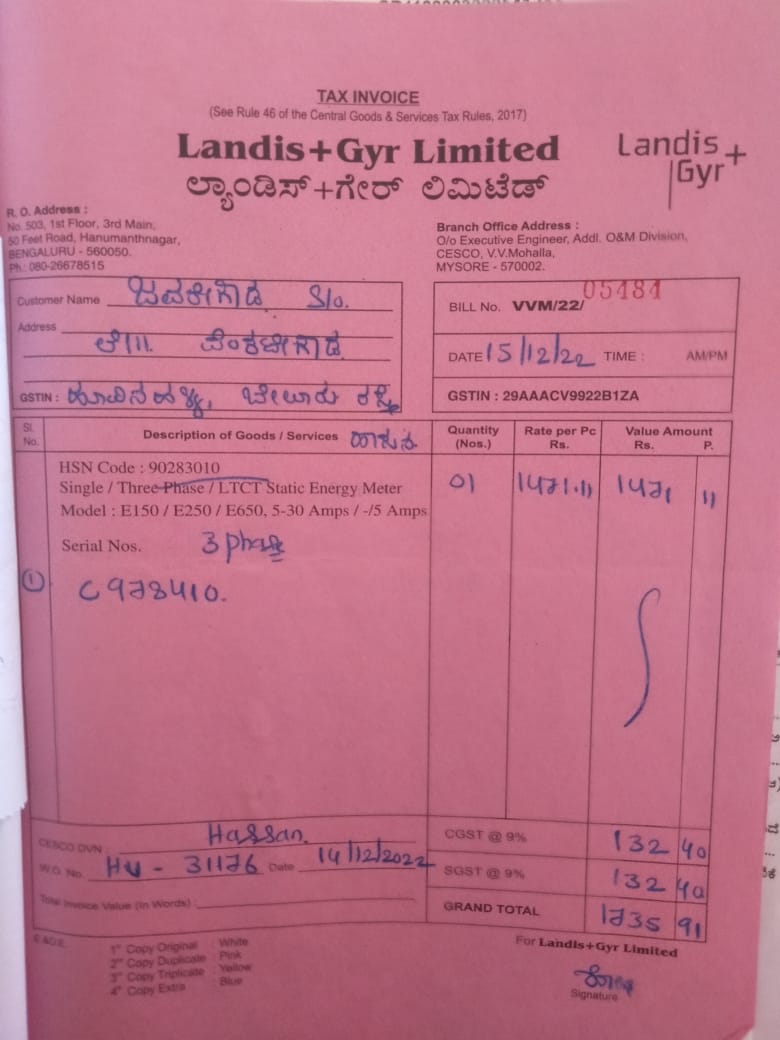 TAX INVOICE
(See Rule 46 of the Central Goods & Services Tax Rules, 2017)
Landis+Gyr Limited
ಲ್ಯಾಂಡಿಸ್+ಗೇರ್ ಲಿಮಿಟೆಡ್
Landis+
Gyr
R. O. Address :
No. 503, 1st Floor, 3rd Main,
50 Feet Road, Hanumanthnagar,
BENGALURU - 560050.
Ph.: 080-26678515
Branch Office Address :
O/o Executive Engineer, Addl. O&M Division,
CESCO, V.V.Mohalla,
MYSORE - 570002.
Customer Name ಜವರೇಗೌಡ S/o.
Address
ವೆಂಕಟೇಗೌಡ
GSTIN : ಬೇಲೂರು
BILL No. VVM/22/ 05484
DATE 15/12/22 TIME : AM/PM
GSTIN : 29AAACV9922B1ZA
Sl. No. Description of Goods / Services ಹಾಸನ Quantity (Nos.) Rate per Pc Rs. Value Amount Rs. P.
HSN Code : 90283010
Single / Three Phase / LTCT Static Energy Meter 01 1471.11 1471 11
Model : E150 / E250 / E650, 5-30 Amps / -/5 Amps
Serial Nos. 3 phase
① C978410.
CESCO DVN : Hassan. CGST @ 9% 132 40
W.O. No. HU - 31176 Date 14/12/2022 SGST @ 9% 132 40
Total Invoice Value (In Words) GRAND TOTAL 1735 91
E.&O.E.
1st Copy Original : White
2nd Copy Duplicate : Pink
3rd Copy Triplicate : Yellow
4th Copy Extra : Blue
For Landis+Gyr Limited
Signature